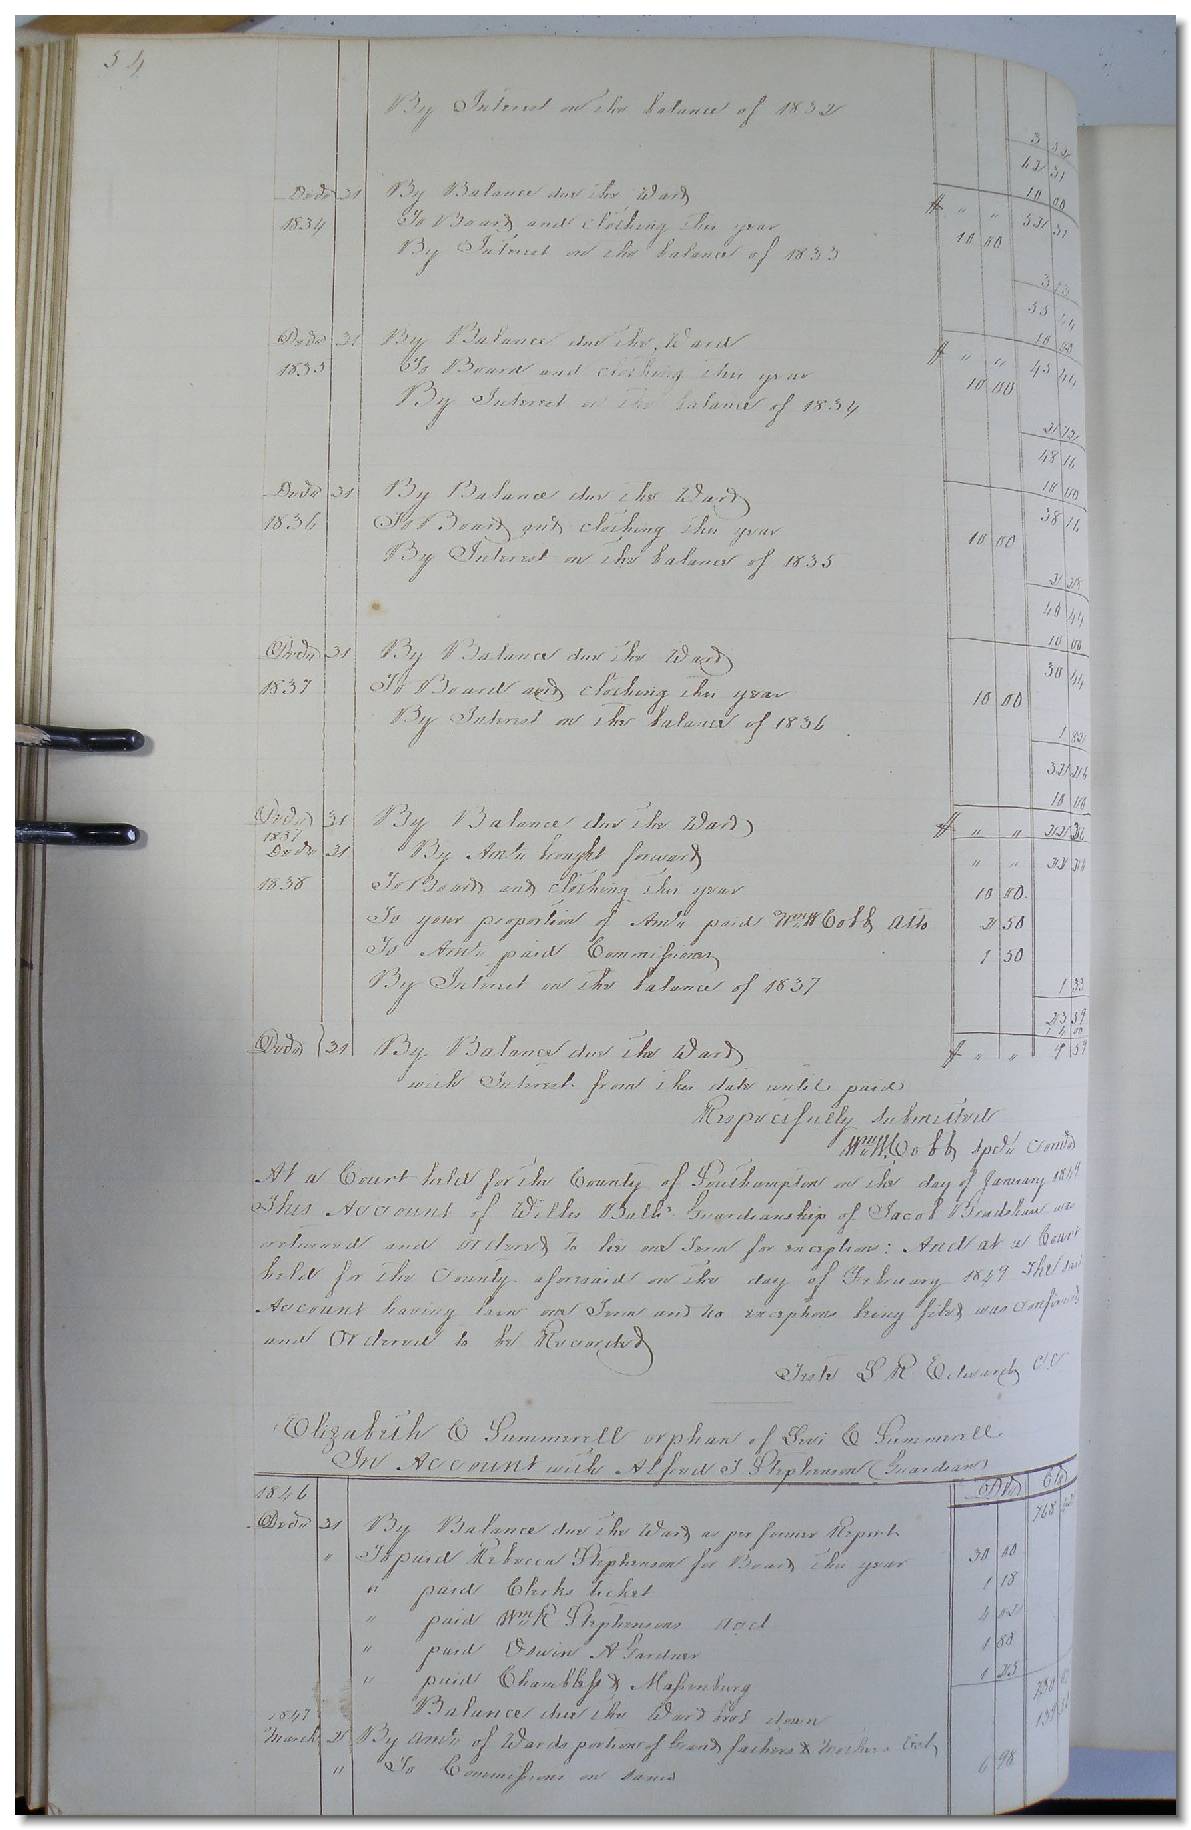 54
By Interest on the balance of 1832
3 32
42 31
10 00
Decr 31 By Balance due the Ward $ " " 32 31
1834 To Board and clothing this year 10 00
By Interest on the balance of 1833
3 13
55 44
10 00
Decr 31 By Balance due the Ward $ " " 45 44
1835 To Board and clothing this year 10 00
By Interest on the balance of 1834
2 72
48 16
10 00
Decr 31 By Balance due the Ward 38 16
1836 To Board and clothing this year 10 00
By Interest on the balance of 1835
2 28
40 44
10 00
Decr 31 By Balance due the Ward 30 44
1837 To Board and clothing this year 10 00
By Interest on the balance of 1836
1 82
32 26
10 00
Decr 31 By Balance due the Ward $ " " 22 26
1837
Decr 31 By Amt bought forward " "
1838 To Board and clothing this year 10 00
To your proportion of Amt paid Wm H Cobb Atto 2 50
To Amt paid Commissioner 1 50
By Interest on the balance of 1837 1 33
23 59
14 00
Decr 31 By Balance due the Ward $ " " 9 59
with Interest from this date until paid
Respectfully submitted
Wm H Cobb Specl Comr
At a Court held for the County of Southampton on the day of January 1849
This Account of Willis Guardianship of Jacob Bradshaw was
returned and ordered to lie one Term for exception: And at a Court
held for the County aforesaid on the day of February 1849 The said
Account having lain one Term and no exceptions being filed was confirmed
and Ordered to be Recorded
Teste L R Edwards C.C
Elizabeth C Summerell orphan of Levi C Summerell
In Account with Alfred J Stephenson (Guardian)
1846 Dols Cts
Decr 31 By Balance due the Ward as per former Report 768
" To paid Rebecca Stephenson for Board this year 30 00
" paid Clerks ticket 1 18
" paid Wm R Stephensons acct 4 02
" paid Edwin A Gardner 1 80
" paid Chambliss & Massenburg 1 25
Balance due the Ward brot down 730
1847
March 21 By amt of Wards portion of Grand fathers & Mothers Est
" To Commissions on same 6 98